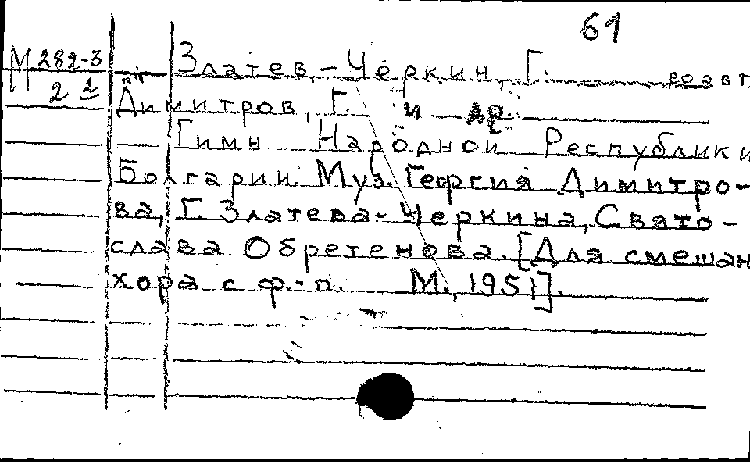 61
М 282-3 Златев-Черкин, Г. соавт
2 2 Димитров, Г. и др.
Гимн Народной Республики
Болгарии. Муз. Георгия Димитро-
ва, Г. Златева-Черкина, Свято-
слава Обретенова. [Для смешан
хора с ф.-п. М., 1951].